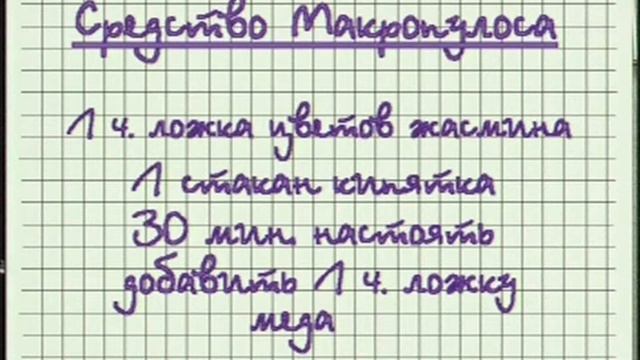 Средство Макропулоса
1 ч. ложка цветов жасмина
1 стакан кипятка
30 мин. настоять
добавить 1 ч. ложку
меда